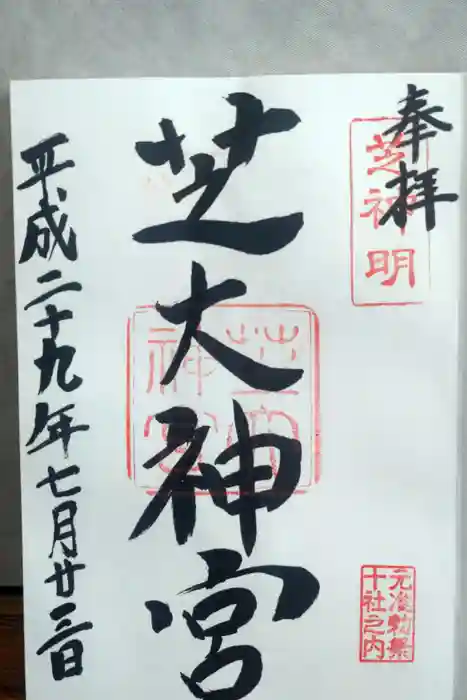 奉拝
芝神明
元准勅祭
十社之内
芝大神宮
平成二十九年七月廿三日